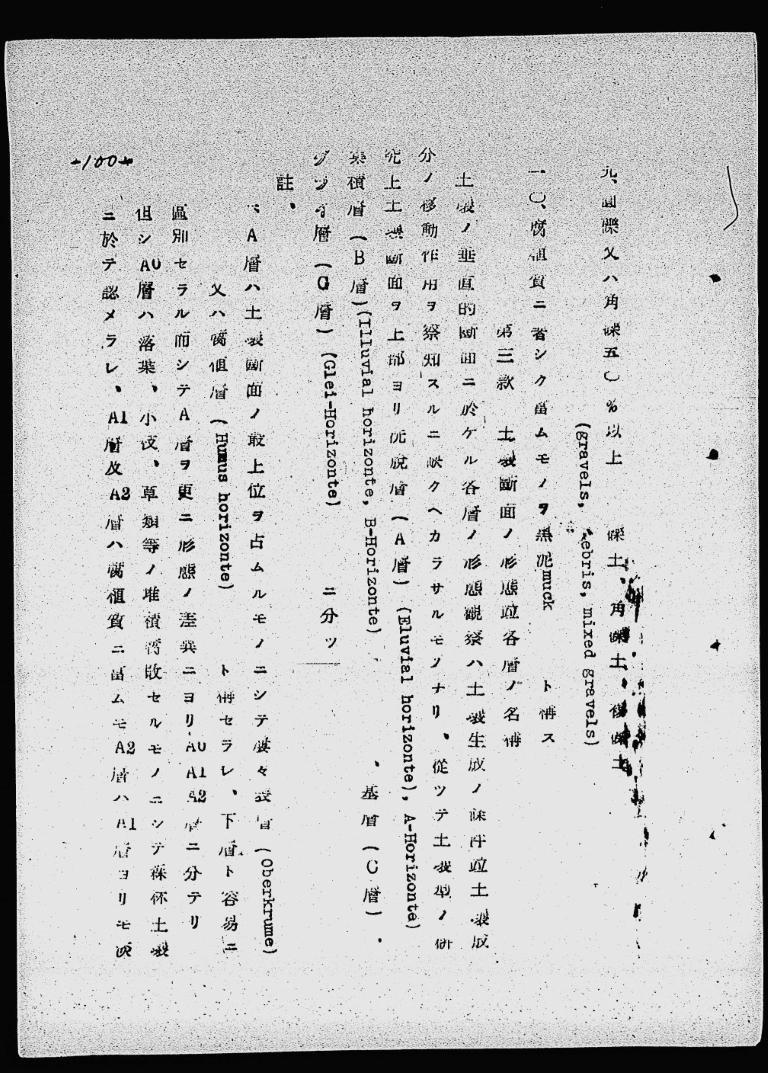 九、圓礫又ハ角礫五〇%以上 礫土、角礫土、複礫土
(gravels, debris, mixed gravels)
一〇、腐植質ニ著シク富ムモノヲ黒泥muck ト稱ス
第三款 土壤斷面ノ形態竝各層ノ名稱
土壤ノ垂直的斷面ニ於ケル各層ノ形態觀察ハ土壤生成ノ條件竝土壤成
分ノ移動作用ヲ察知スルニ缺クヘカラサルモノナリ、從ツテ土壤型ノ研
究上土壤斷面ヲ上部ヨリ洗脱層(A層)(Eluvial horizonte), A-Horizonte)
集積層(B層)(Illuvial horizonte, B-Horizonte)、基層(C層)、
グライ層(G層)(Glei-Horizonte) ニ分ツ
註、
一、A層ハ土壤斷面ノ最上位ヲ占ムルモノニシテ屡々表層(Oberkrume)
又ハ腐植層(Humus horizonte) ト稱セラレ、下層ト容易ニ
區別セラル而シテA層ヲ更ニ形態ノ差異ニヨリA0 A1 A2層ニ分テリ
但シA0層ハ落葉、小枝、草類等ノ堆積腐敗セルモノニシテ森林土壤
ニ於テ認メラレ、A1層及A2層ハ腐植質ニ富ムモA2層ハA1層ヨリモ淡
-100-